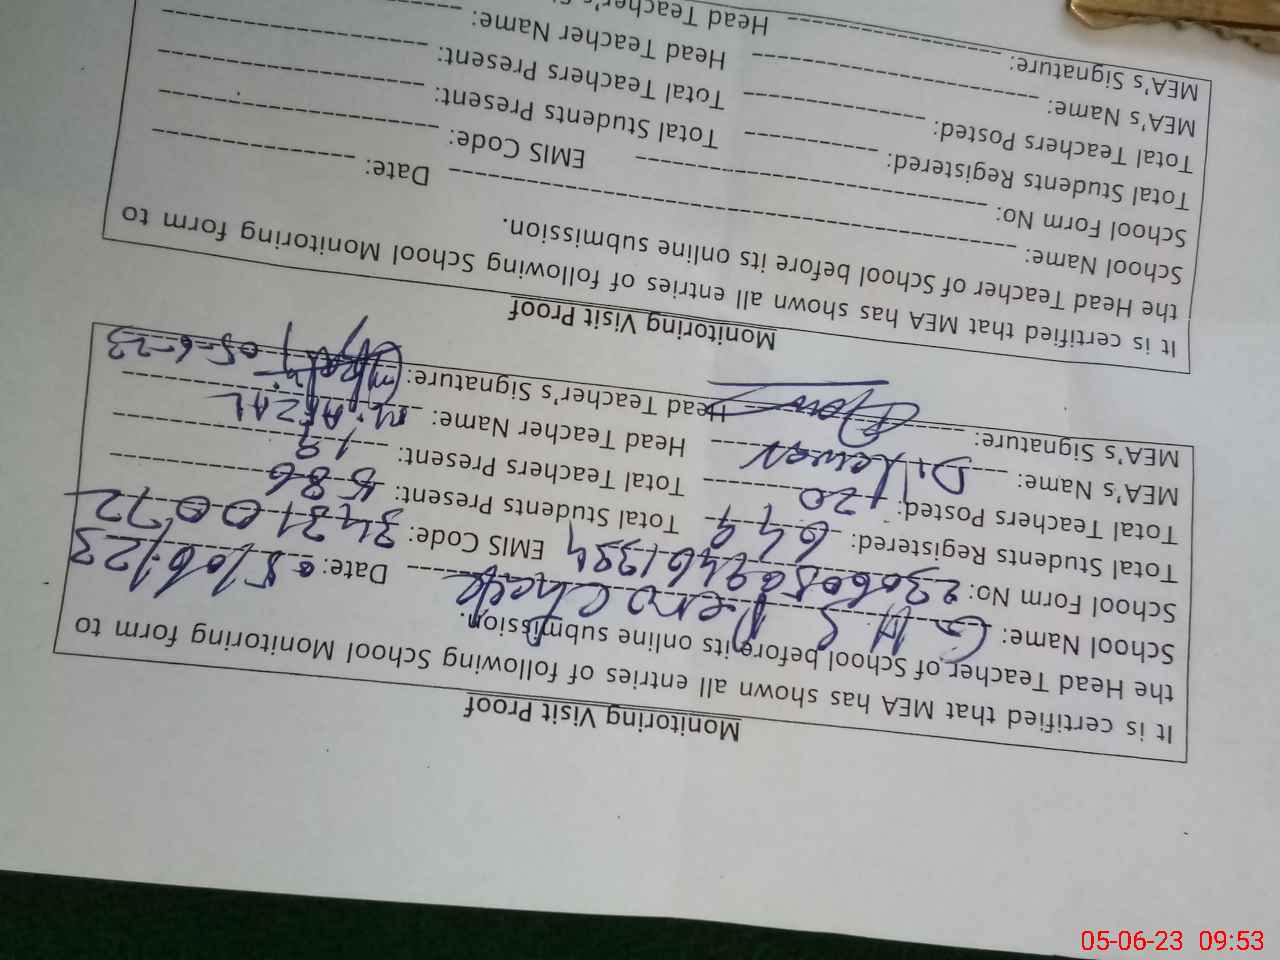 Monitoring Visit Proof
It is certified that MEA has shown all entries of following School Monitoring form to
the Head Teacher of School before its online submission.
School Name: G H S Pero Chak Date: 05/06/23
School Form No: EMIS Code: 34310072
Total Students Registered: 649 Total Students Present: 586
Total Teachers Posted: 20 Total Teachers Present: 19
MEA's Name: Dilawar Head Teacher Name: M. AFZAL
MEA's Signature: Head Teacher's Signature: 05-6-23
Monitoring Visit Proof
It is certified that MEA has shown all entries of following School Monitoring form to
the Head Teacher of School before its online submission.
School Name: Date:
School Form No: EMIS Code:
Total Students Registered: Total Students Present:
Total Teachers Posted: Total Teachers Present:
MEA's Name: Head Teacher Name:
MEA's Signature: Head Teacher's
05-06-23 09:53